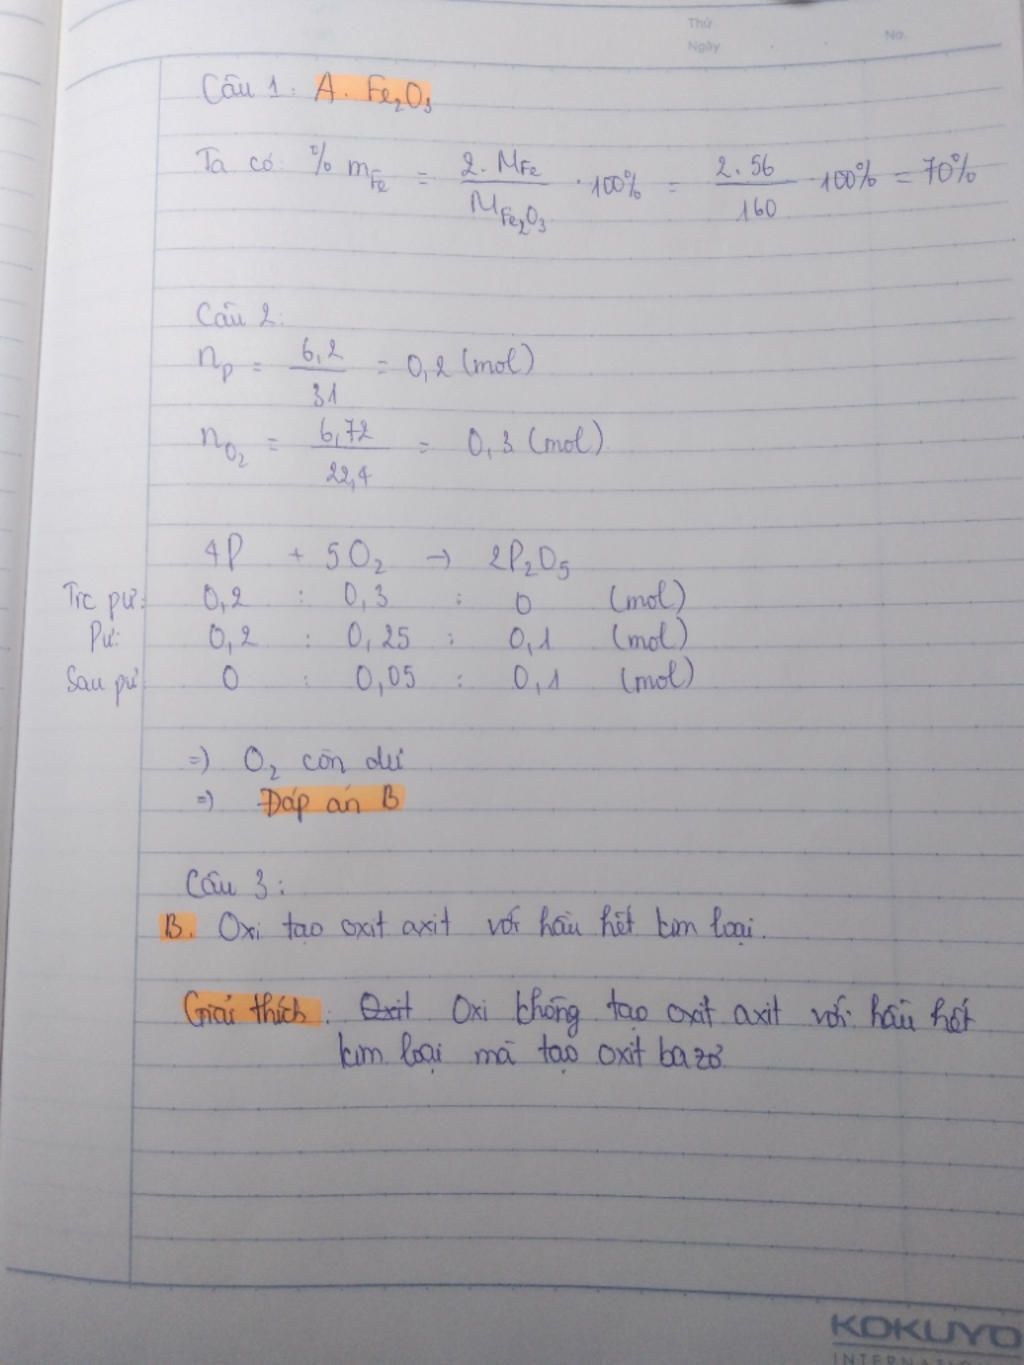 Thứ
Ngày
No.
Câu 1: A. Fe₂O₃
Ta có: % m_Fe = 2. M_Fe / M_Fe₂O₃ . 100% = 2.56 / 160 . 100% = 70%
Câu 2:
n_P = 6,2 / 31 = 0,2 (mol)
n_O₂ = 6,72 / 22,4 = 0,3 (mol)
4P + 5O₂ → 2P₂O₅
Trc pư: 0,2 : 0,3 : 0 (mol)
Pư: 0,2 : 0,25 : 0,1 (mol)
Sau pư: 0 : 0,05 : 0,1 (mol)
=) O₂ còn dư
=) Đáp án B
Câu 3:
B. Oxi tạo oxit axit với hầu hết kim loại.
Giải thích: Oxit Oxi không tạo oxit axit với hầu hết
kim loại mà tạo oxit bazơ
KOKUYO